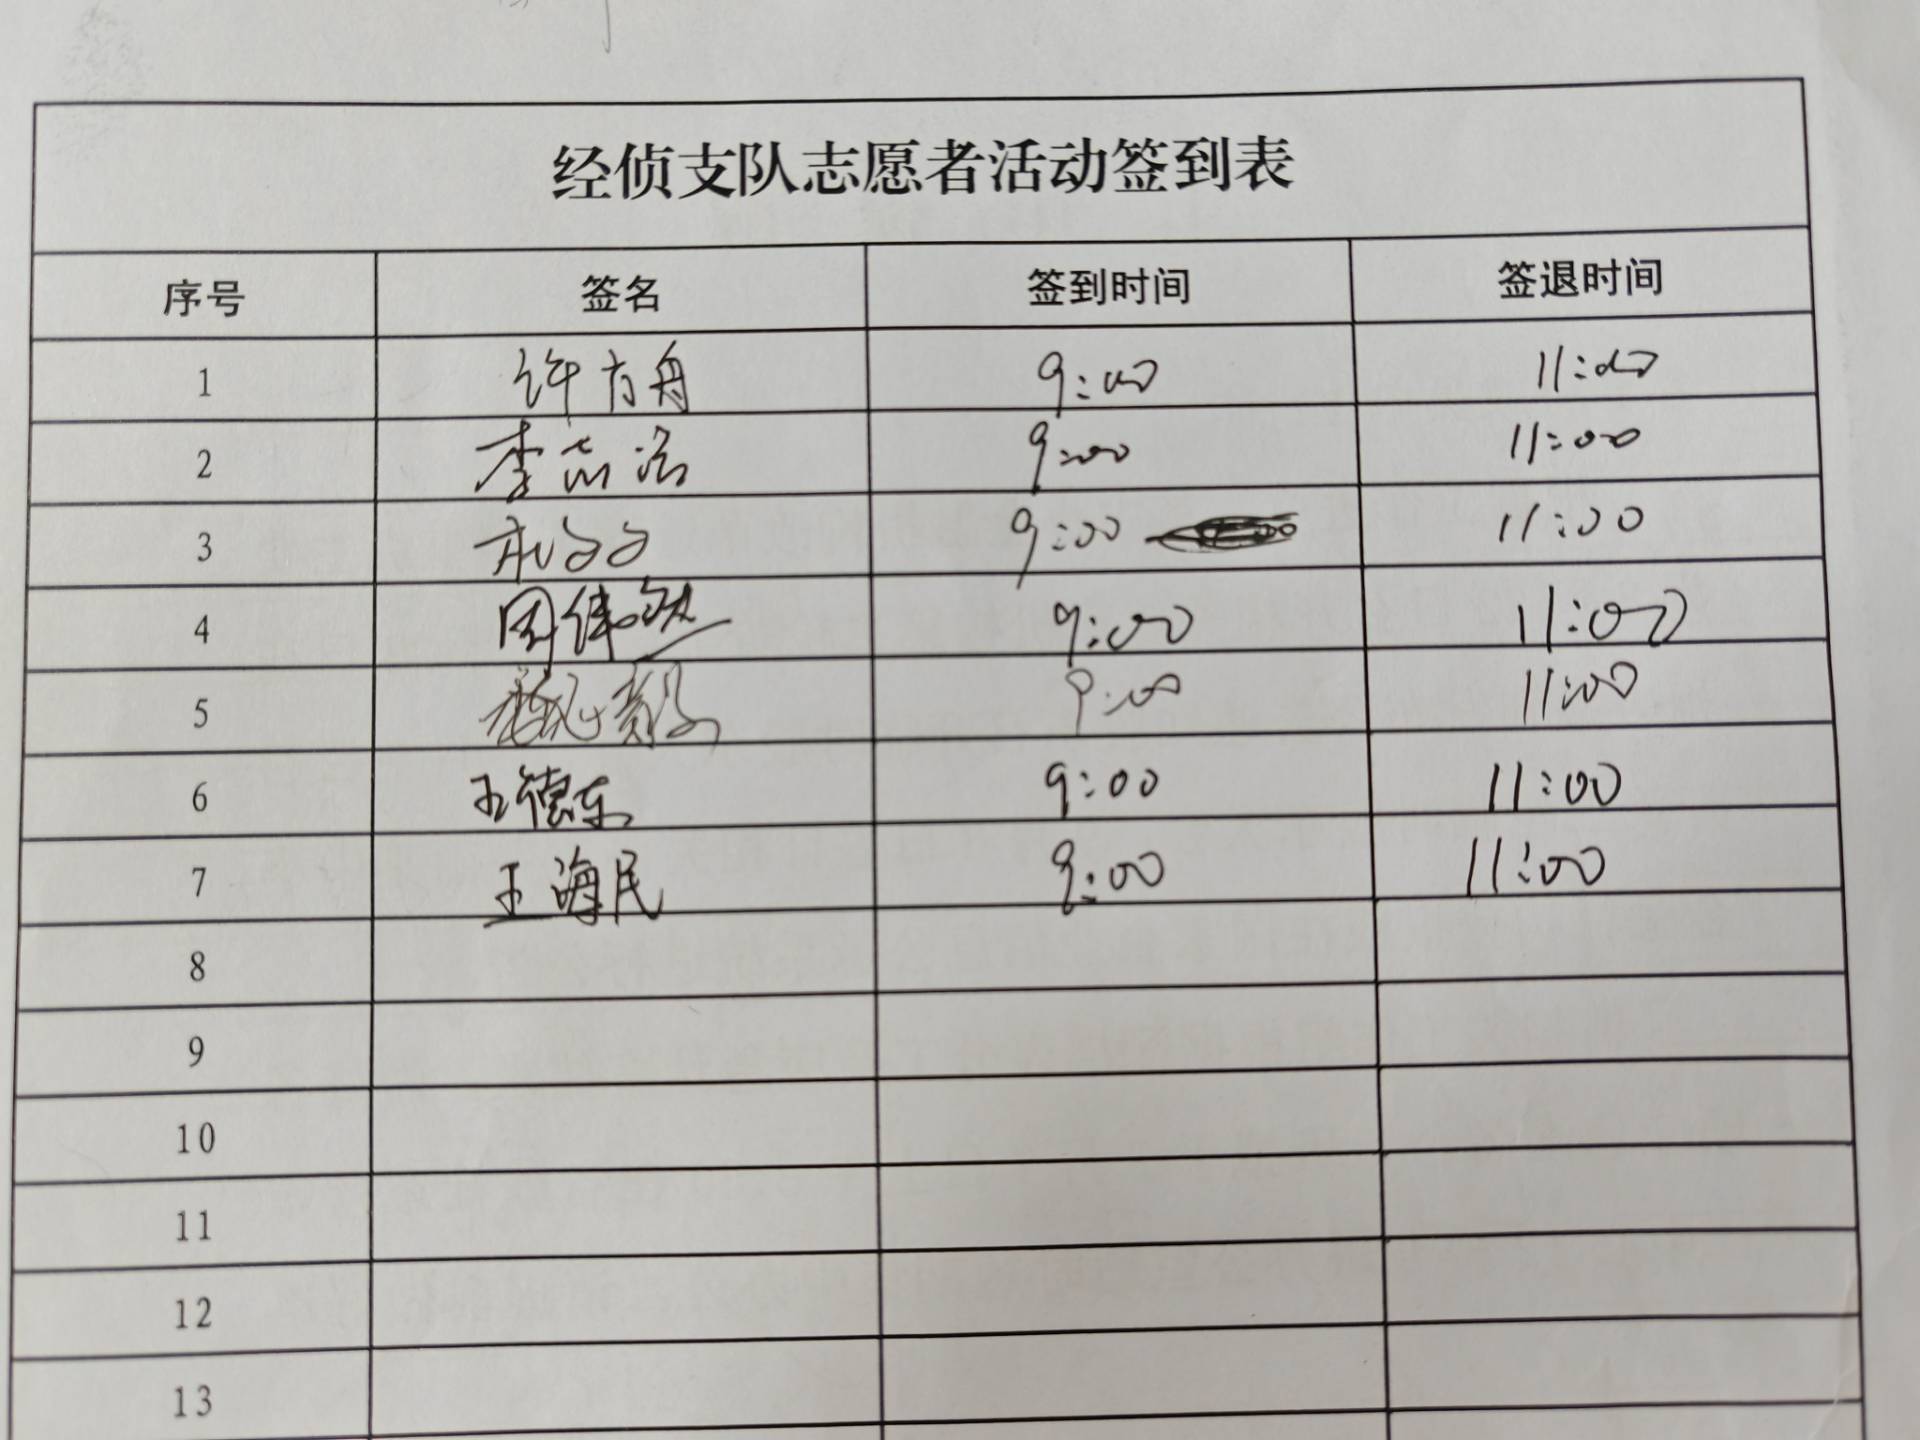 经侦支队志愿者活动签到表
序号 签名 签到时间 签退时间
1 许方舟 9:00 11:00
2 李志浩 9:00 11:00
3 9:00 11:00
4 周伟然 9:00 11:00
5 9:00 11:00
6 王德东 9:00 11:00
7 王海民 9:00 11:00
8
9
10
11
12
13